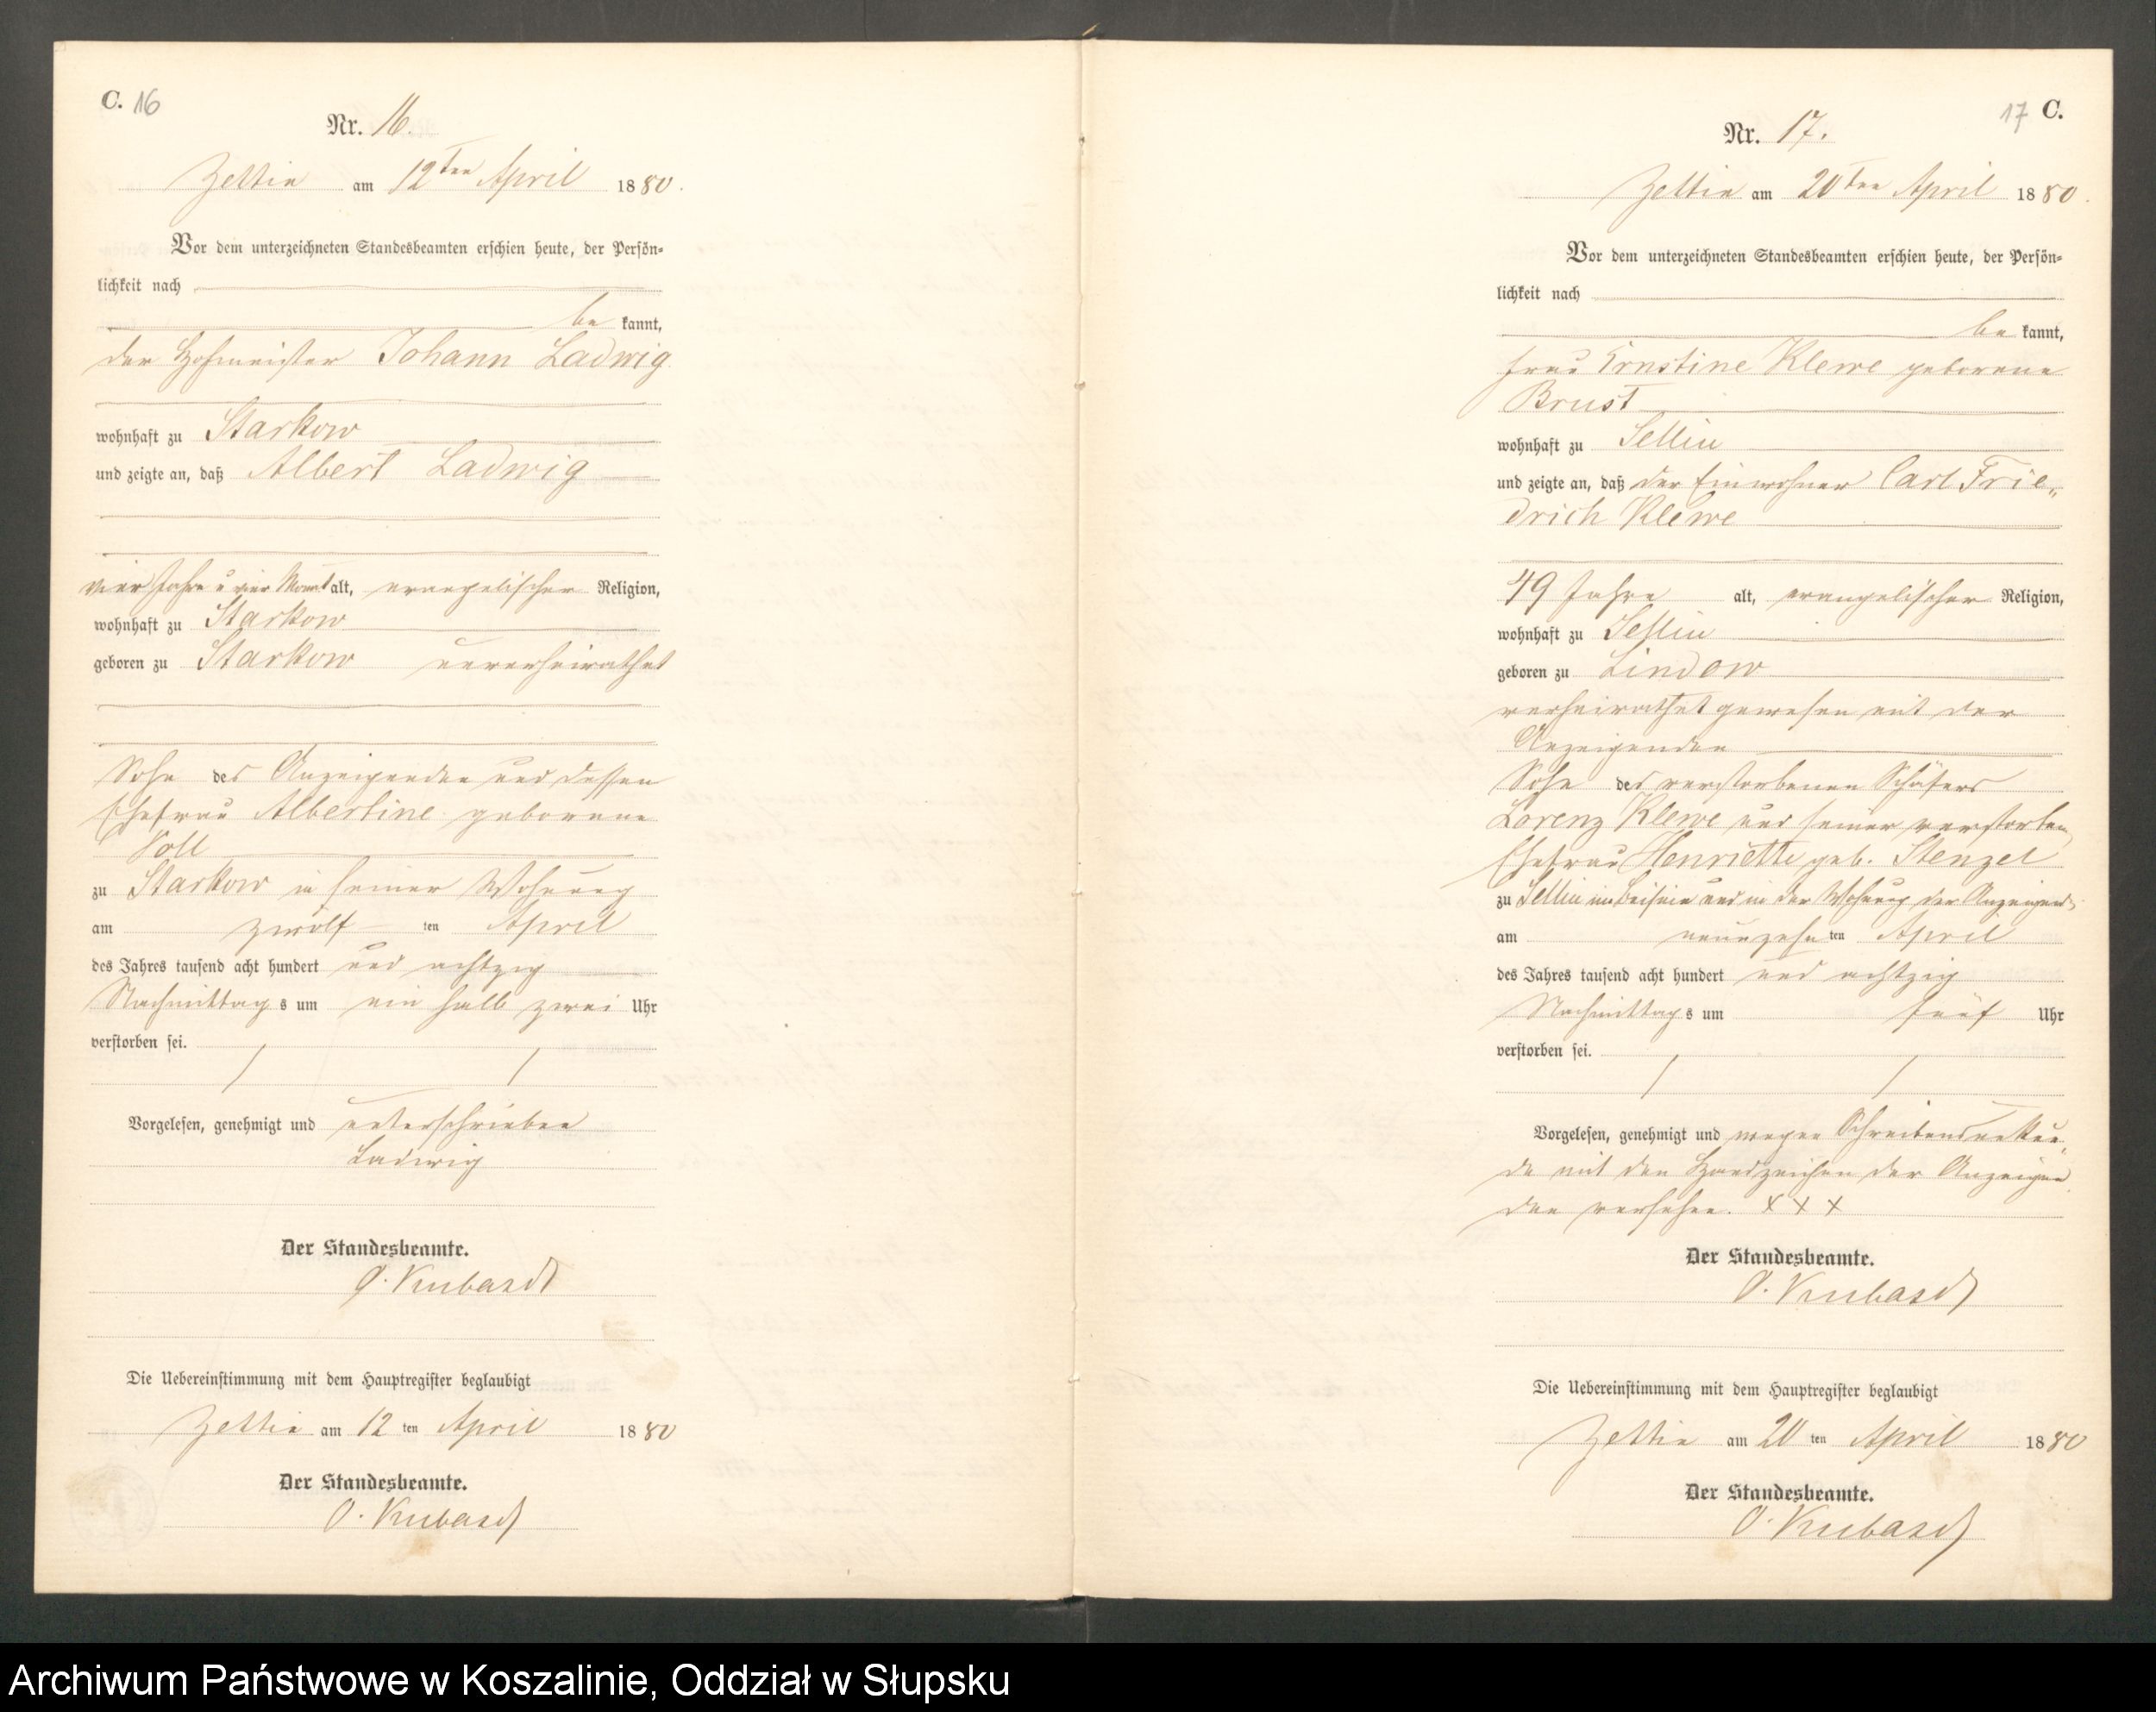 C. 16
Nr. 16.
Zettin am 12ten April 1880.
Vor dem unterzeichneten Standesbeamten erschien heute, der Persön-
lichkeit nach
be kannt,
der Hofmeister Johann Ladwig
wohnhaft zu Starkow
und zeigte an, daß Albert Ladwig
vier Jahre u vier Monat alt, evangelischer Religion,
wohnhaft zu Starkow
geboren zu Starkow unverheirathet
Sohn des Anzeigenden und dessen
Ehefrau Albertine geborene
Voll
zu Starkow in seiner Wohnung
am zwölf ten April
des Jahres tausend acht hundert und achtzig
Nachmittags um ein halb zwei Uhr
verstorben sei.
Vorgelesen, genehmigt und unterschrieben
Ladwig
Der Standesbeamte.
O. Kubasch
Die Uebereinstimmung mit dem Hauptregister beglaubigt
Zettin am 12 ten April 1880
Der Standesbeamte.
O. Kubasch
17 C.
Nr. 17.
Zettin am 20ten April 1880.
Vor dem unterzeichneten Standesbeamten erschien heute, der Persön-
lichkeit nach
be kannt,
Frau Ernstine Klewe geborene
Brust
wohnhaft zu Sellin
und zeigte an, daß der Einwohner Carl Frie-
drich Klewe
49 Jahre alt, evangelischer Religion,
wohnhaft zu Sellin
geboren zu Lindow
verheirathet gewesen mit der
Anzeigenden
Sohn des verstorbenen Schäfers
Lorenz Klewe und seiner verstorben
Ehefrau Henriette geb. Stenzel
zu Sellin im Beisein und in der Wohnung der Anzeigend
am neunzehn ten April
des Jahres tausend acht hundert und achtzig
Nachmittags um fünf Uhr
verstorben sei.
Vorgelesen, genehmigt und wegen Schreibensunkun-
de mit den Handzeichen der Anzeigen
den versehen. XXX
Der Standesbeamte.
O. Kubasch
Die Uebereinstimmung mit dem Hauptregister beglaubigt
Zettin am 20 ten April 1880
Der Standesbeamte.
O. Kubasch
Archiwum Państwowe w Koszalinie, Oddział w Słupsku